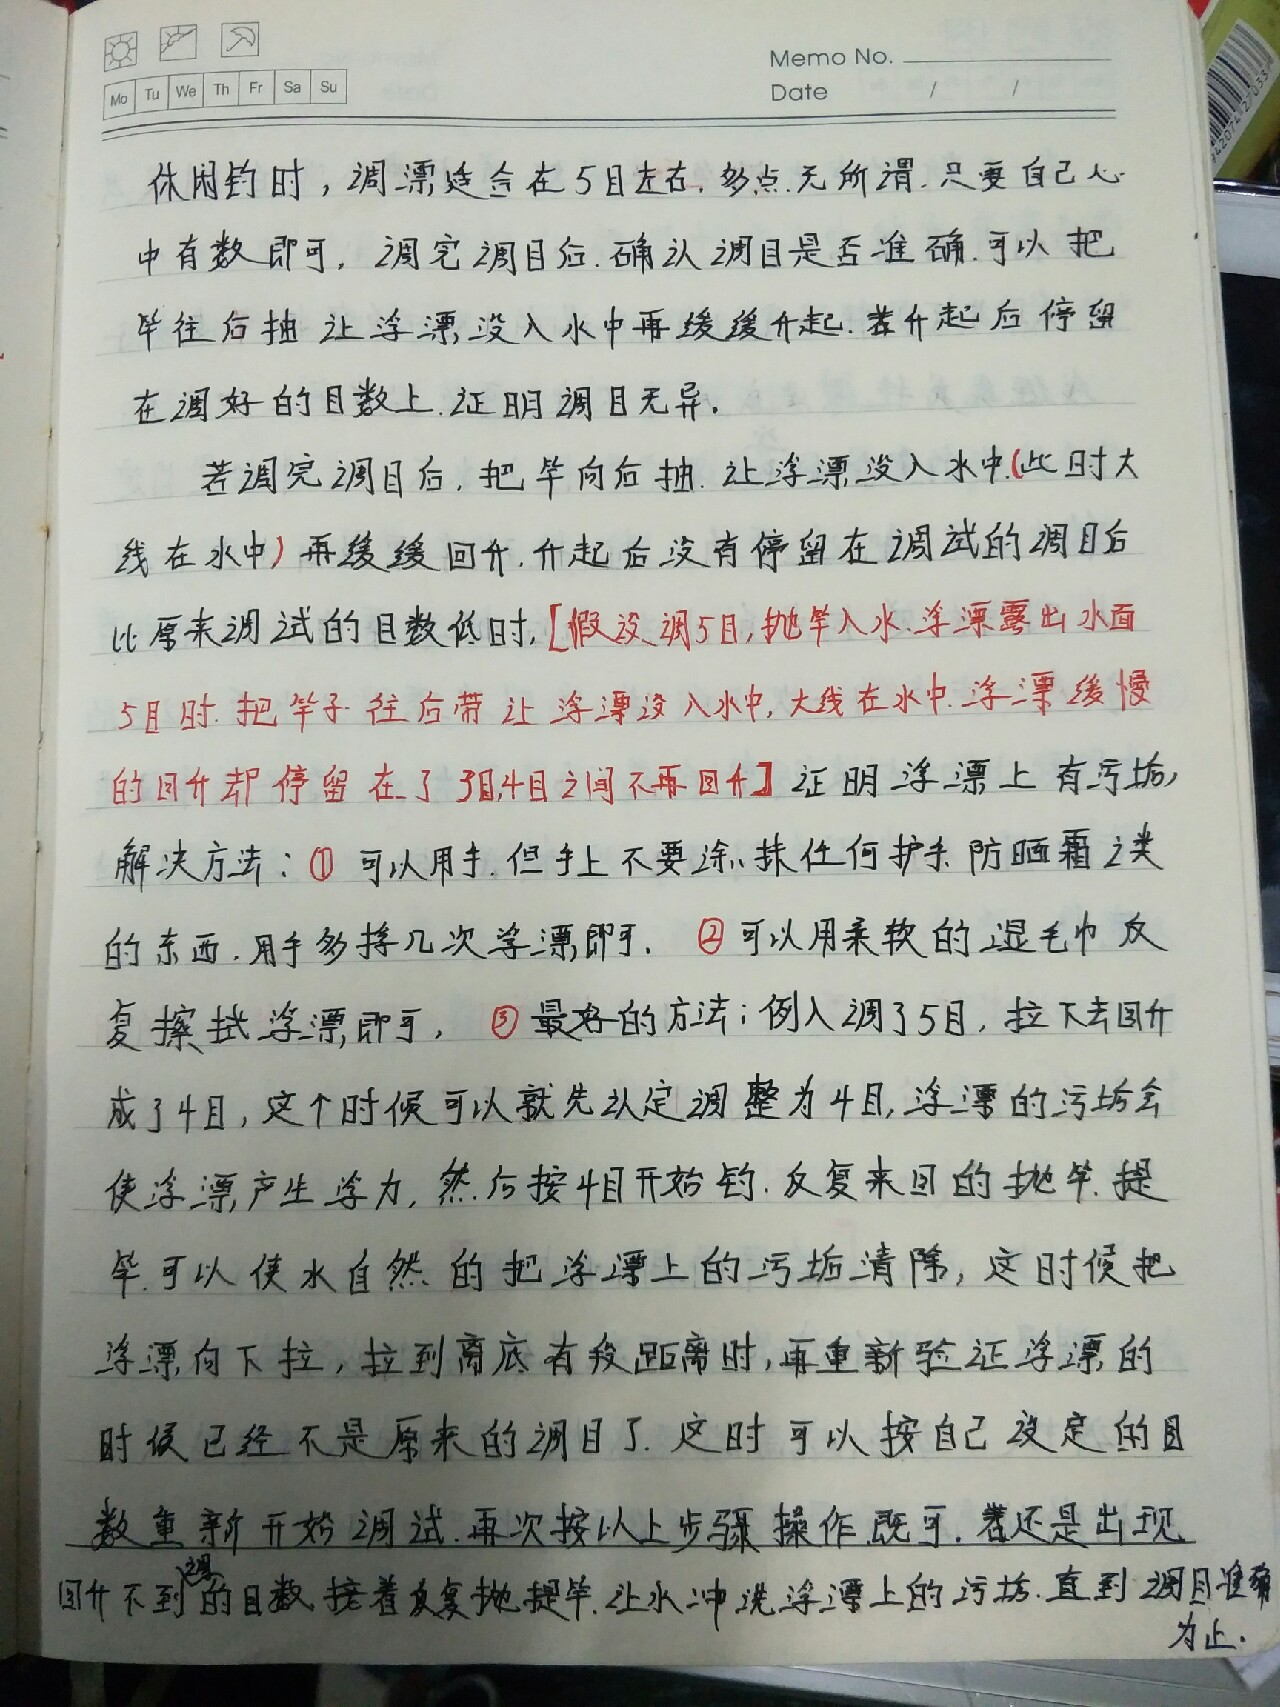 Memo No.
Mo Tu We Th Fr Sa Su
Date / /
休闲钓时，调漂适合在5目左右，多点.无所谓.只要自己心
中有数即可，调完调目后.确认调目是否准确.可以把
竿往后抽让浮漂没入水中再缓缓升起.若升起后停留
在调好的目数上.证明调目无异.
若调完调目后，把竿向后抽.让浮漂没入水中(此时大
线在水中)再缓缓回升.升起后没有停留在调试的调目后
比原来调试的目数低时，[假设调5目，抛竿入水.浮漂露出水面
5目时.把竿子往后带让浮漂没入水中，大线在水中.浮漂缓慢
的回升却停留在了3目,4目之间不再回升]证明浮漂上有污垢，
解决方法：①可以用手.但手上不要涂抹任何护手.防晒霜之类
的东西.用手多捋几次浮漂即可. ②可以用柔软的湿毛巾反
复擦拭浮漂即可， ③最好的方法；例入调了5目，拉下去回升
成了4目，这个时候可以就先认定调整为4目，浮漂的污垢会
使浮漂产生浮力，然后按4目开始钓.反复来回的抛竿.提
竿.可以使水自然的把浮漂上的污垢清除，这时候把
浮漂向下拉，拉到离底有段距离时，再重新验证浮漂的
时候已经不是原来的调目了.这时可以按自己设定的目
数重新开始调试.再次按以上步骤操作既可.若还是出现
回升不到调的目数接着反复抛提竿.让水冲洗浮漂上的污垢.直到调目准确
为止.